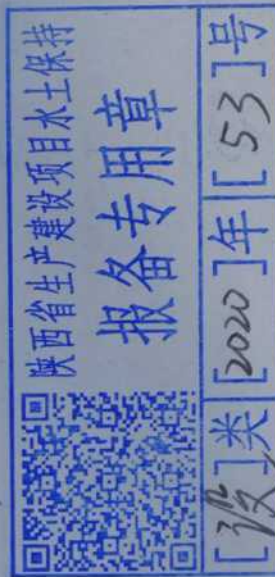 陕西省生产建设项目水土保持
报备专用章
[验]类[2020]年[53]号